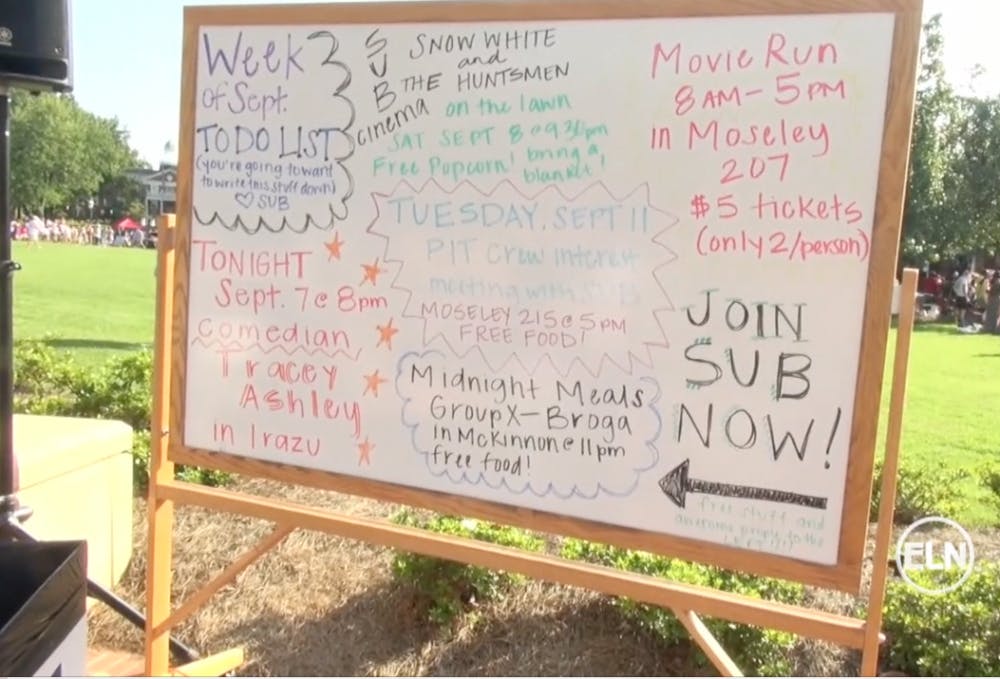 Week
of Sept.
TO DO LIST
(you're going to want
to write this stuff down)
♡ SUB
SUB
cinema
SNOW WHITE
and
THE HUNTSMEN
on the lawn
SAT SEPT 8 @ 9:30pm
Free Popcorn! bring a
blanket!
Movie Run
8AM-5PM
in Moseley
207
$5 tickets
(only 2/person)
TONIGHT
Sept. 7 @ 8pm
comedian
Tracey
Ashley
in Irazu
TUESDAY, SEPT 11
PIT Crew interest
meeting with SUB
MOSELEY 215 @ 5 PM
FREE FOOD!
Midnight Meals
GroupX-Broga
in McKinnon @ 11pm
free food!
JOIN
SUB
NOW!
free stuff and
awesome people to the
ELN